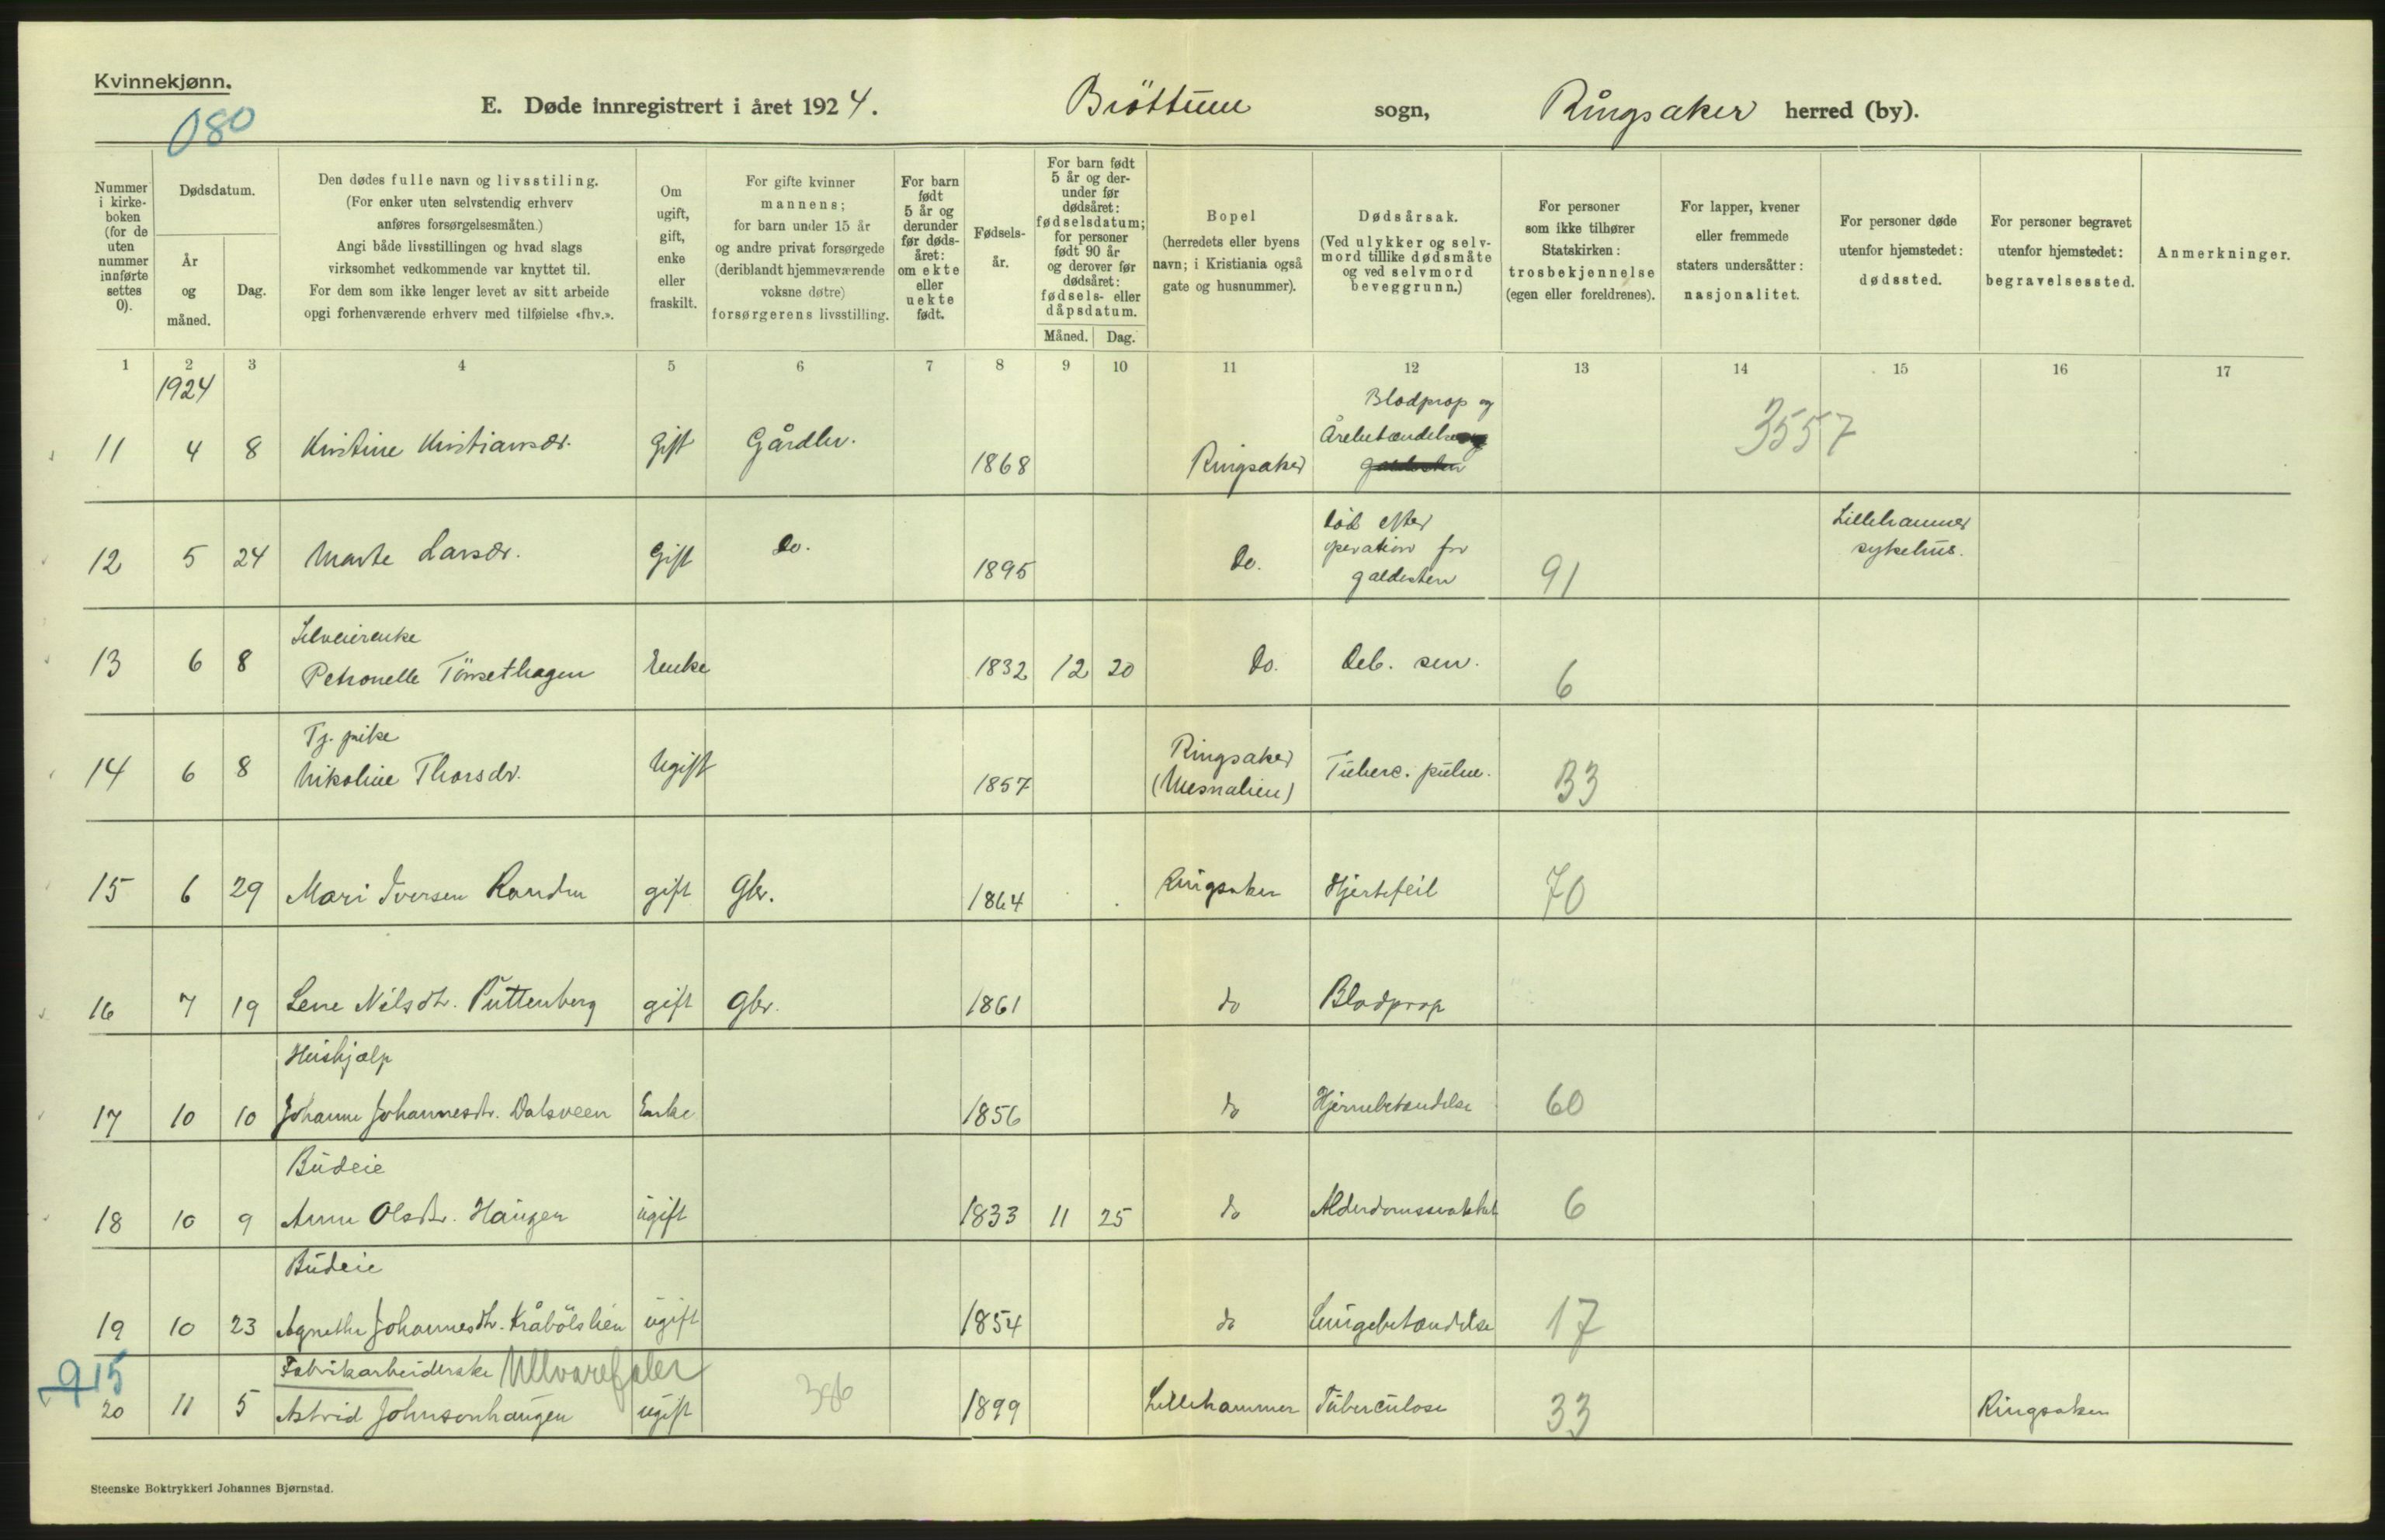 Kvinnekjønn.
080
E. Døde innregistrert i året 1924. Brøttum sogn, Ringsaker herred (by).
Nummer i kirkeboken (for de uten nummer innførte settes 0).
Dødsdatum.
År og måned.
Dag.
Den dødes fulle navn og livsstiling.
(For enker uten selvstendig erhverv
anføres forsørgelsesmåten.)
Angi både livsstillingen og hvad slags
virksomhet vedkommende var knyttet til.
For dem som ikke lenger levet av sitt arbeide
opgi forhenværende erhverv med tilføielse «fhv.».
Om ugift, gift, enke eller fraskilt.
For gifte kvinner
mannens;
for barn under 15 år
og andre privat forsørgede
(deriblandt hjemmeværende
voksne døtre)
forsørgerens livsstilling.
For barn født 5 år og derunder før dødsåret: om ekte eller uekte født.
Fødselsår.
For barn født 5 år og derunder før dødsåret: fødselsdatum; for personer født 90 år og derover før dødsåret: fødsels- eller dåpsdatum.
Måned. Dag.
Bopel
(herredets eller byens
navn; i Kristiania også
gate og husnummer).
Dødsårsak.
(Ved ulykker og selvmord tillike dødsmåte
og ved selvmord
beveggrunn.)
For personer
som ikke tilhører
Statskirken:
trosbekjennelse
(egen eller foreldrenes).
For lapper, kvener
eller fremmede
staters undersåtter:
nasjonalitet.
For personer døde
utenfor hjemstedet:
dødssted.
For personer begravet
utenfor hjemstedet:
begravelsessted.
Anmerkninger.
1 2 3 4 5 6 7 8 9 10 11 12 13 14 15 16 17
1924
Blodprop og
11 4 8 Kristine Kristiansdr. Gift Gårdbr. 1868 Ringsaker Årebetændelse 3557
12 5 24 Marte Larsdr. Gift Do. 1895 Do. Død efter operation for galdesten 91 Lillehammer sykehus.
Selveierenke
13 6 8 Petronelle Tørsethagen Enke 1832 12 20 Do. Deb. sen. 6
Tj. pike
14 6 8 Nikoline Thorsdr. Ugift 1857 Ringsaker (Mesnalien) Tuberc. pulm. 33
15 6 29 Mari Iversen Randen gift Gbr. 1864 Ringsaker Hjertefeil 70
16 7 19 Lene Nilsdtr. Puttenberg gift Gbr. 1861 do Blodprop
Hushjælp
17 10 10 Johanne Johannesdtr. Dalsveen Enke 1856 do Hjernebetændelse 60
Budeie
18 10 9 Anne Olsdtr. Haugen ugift 1833 11 25 do Alderdomssvakhet 6
Budeie
19 10 23 Agnethe Johannesdtr. Kråbølslien ugift 1854 do Lungebetændelse 17
915
Fabrikarbeiderske
20 11 5 Astrid Johnsonhaugen ugift 386 1899 Lillehammer Tuberculose 33 Ringsaker
Steenske Boktrykkeri Johannes Bjørnstad.